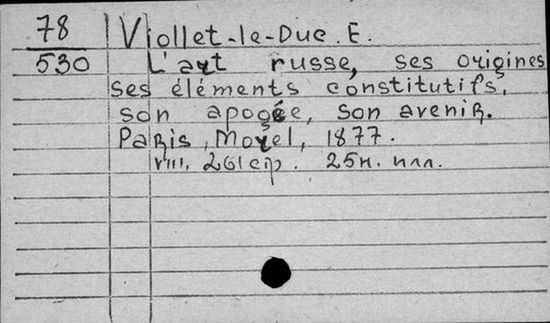 78 Viollet-le-Duc. E.
530 L'art russe, ses origines
ses éléments constitutifs,
son apogée, son avenir.
Paris, Morel, 1877.
VIII, 261 стр. 25 н. илл.